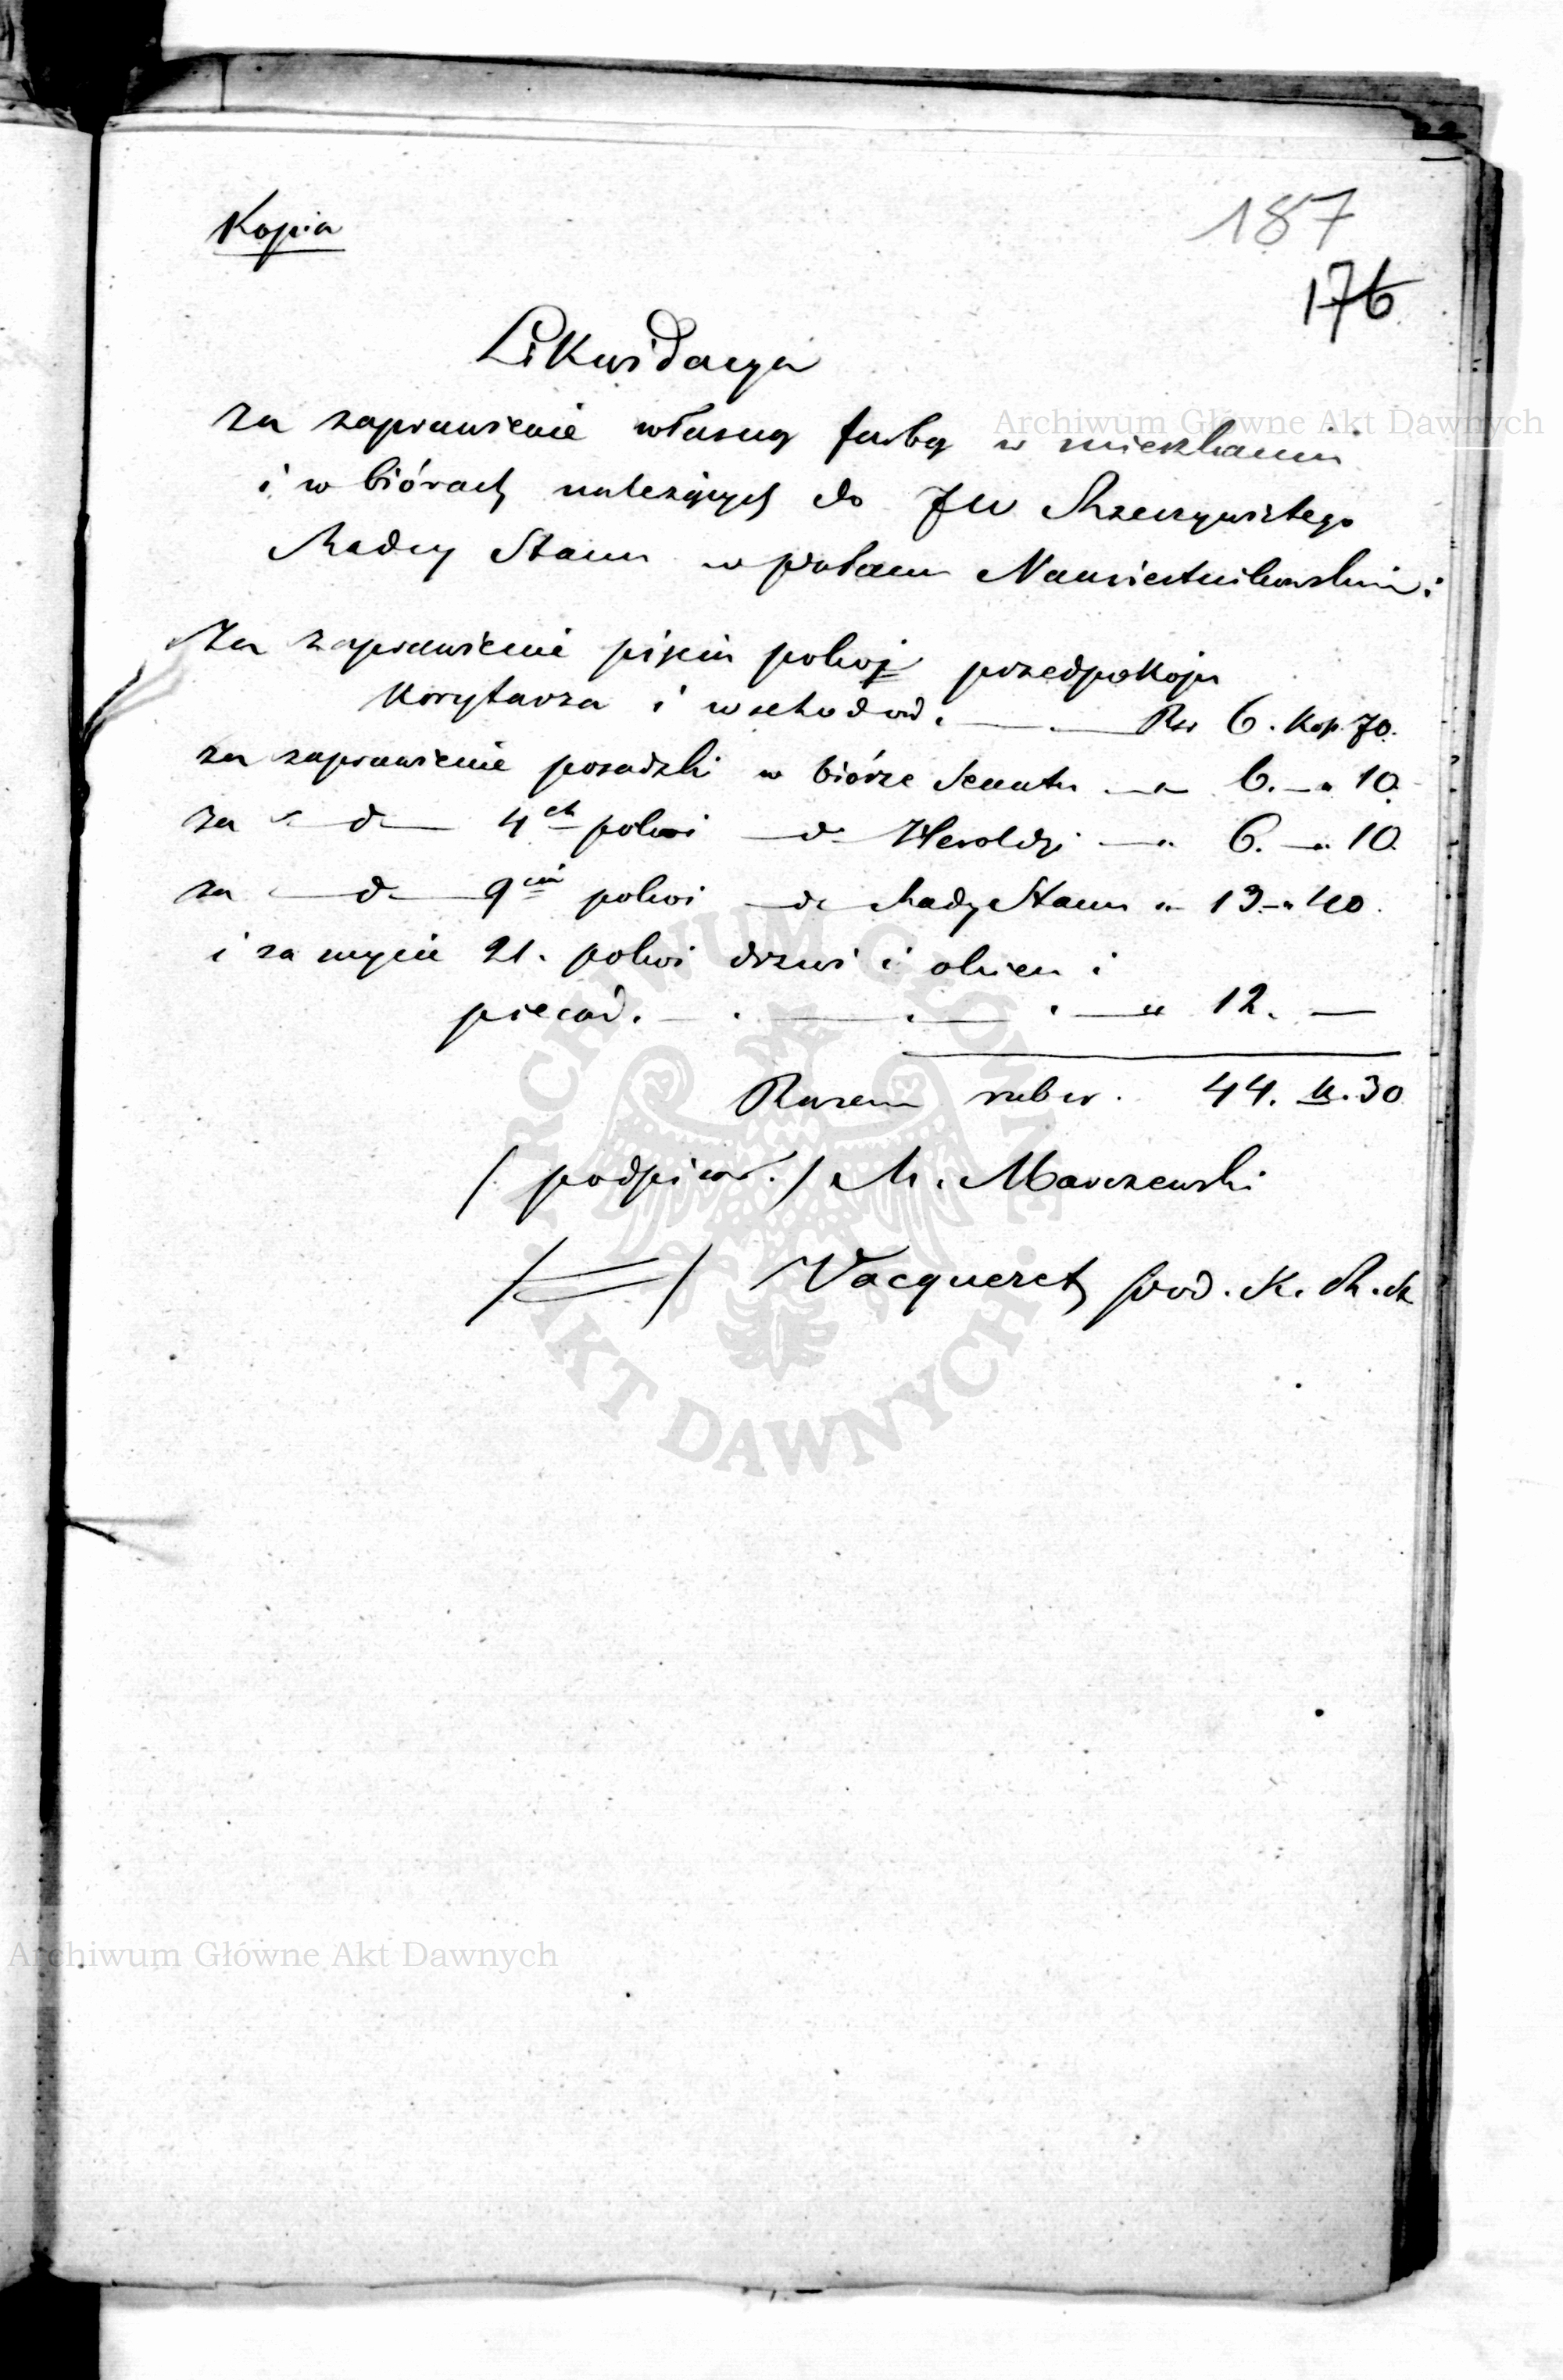 187
176
Kopia
Likwidacya
Za zaprawienie własną farbą w mieszkaniu
i w biórach należących do JW Rzeczywistego
Radcy Stanu w pałacu Namiestnikowskim:
Za zaprawienie pięciu pokoj przedpokoju
Korytarza i wschodow. — Rsr 6. Kop. 70.
za zaprawienie posadzki w biórze Senatu — „ 6. — „ 10.
za — d — 4ch pokoi — d — Heroldyi — „ 6. — „ 10.
za — d — 9ciu pokoi — d — Rady Stanu „ 13. — „ 40.
i za mycie 21. pokoi drzwi i okien i
piecow. — . — . — . — „ 12. —
Razem rubsr. 44. k. 30
/ podpisał. / M. Marczewski
/ = / Vacqueret pod. K. R. S.
Archiwum Główne Akt Dawnych
ARCHIWUM GŁÓWNE
· AKT DAWNYCH ·
Archiwum Główne Akt Dawnych